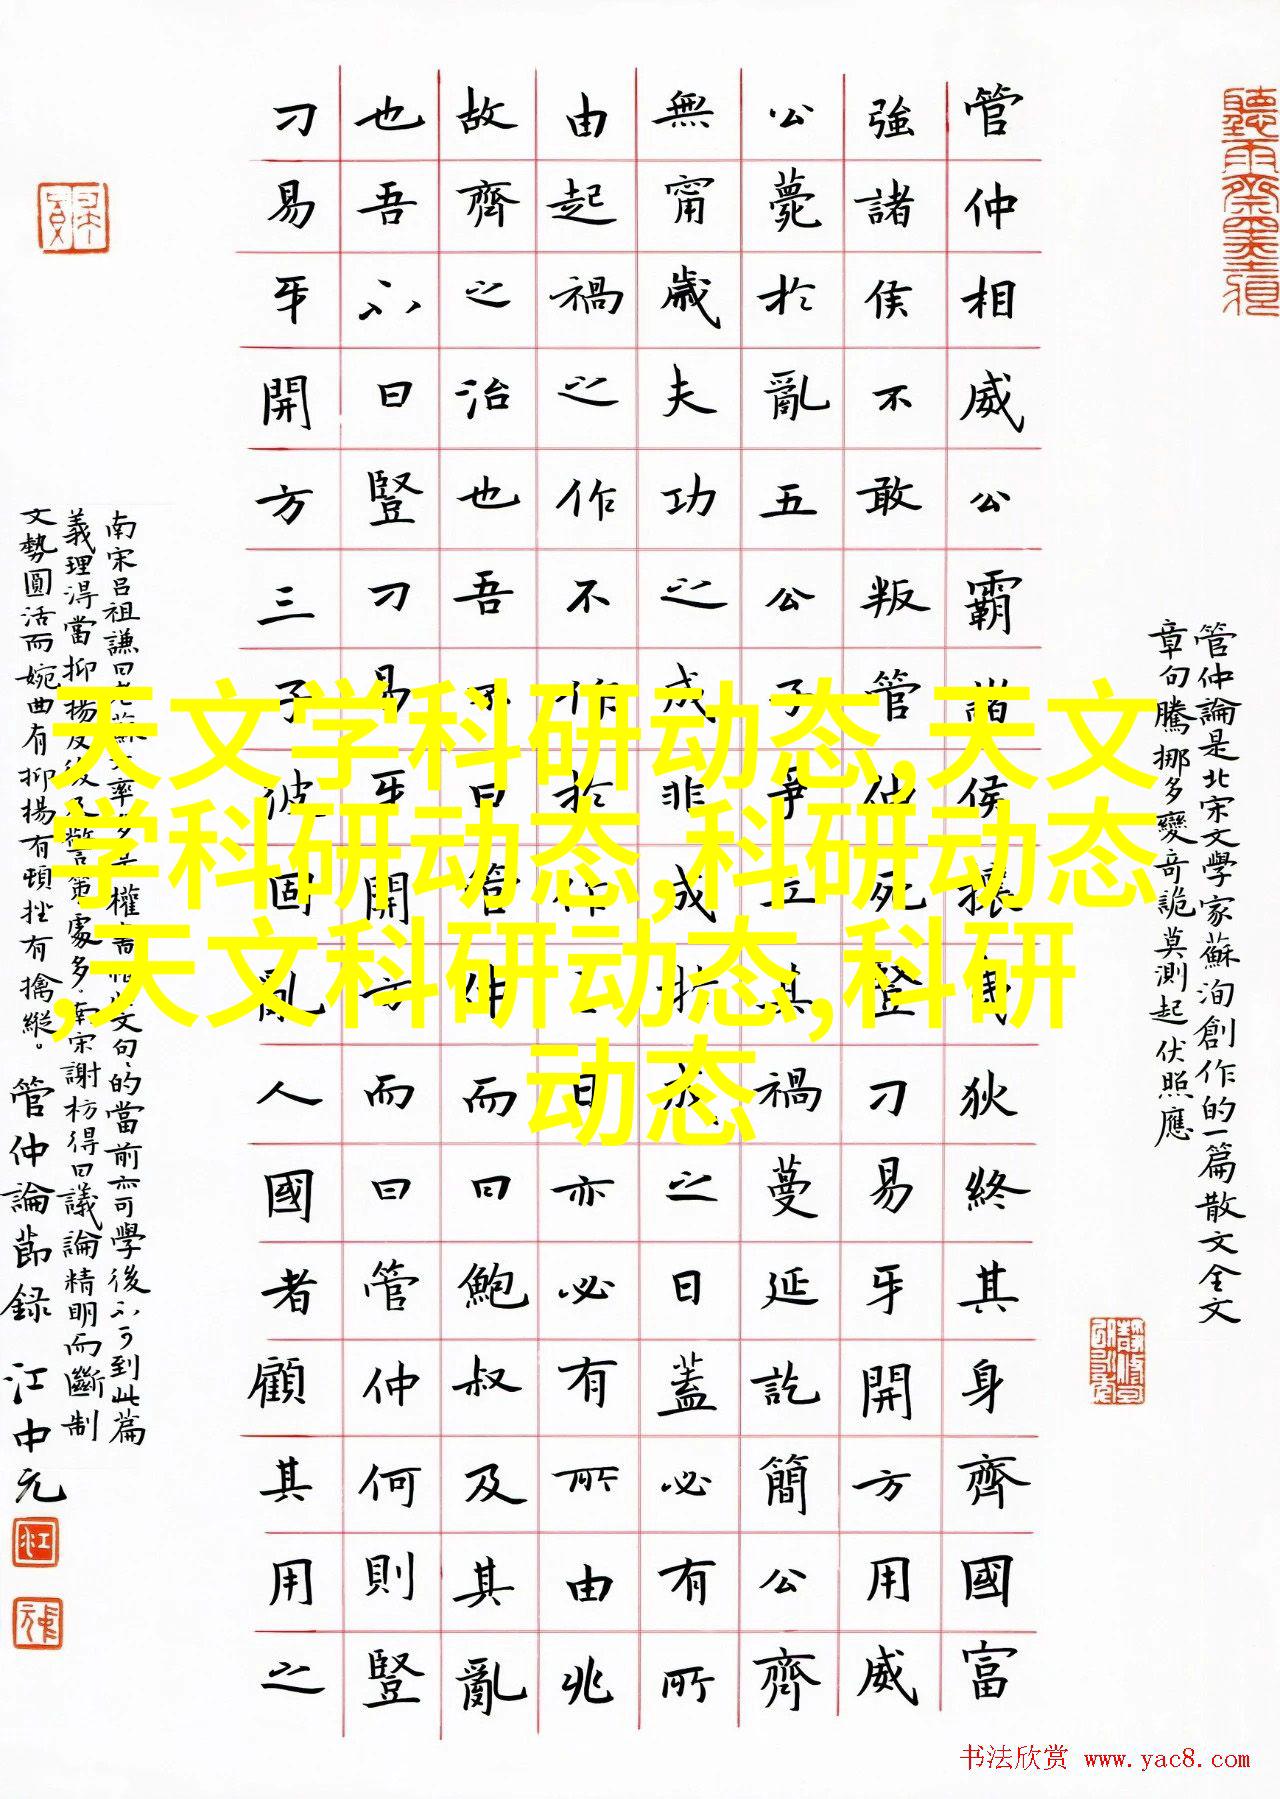 管仲相威公霸諸侯攘戎狄終其身齊國富
強諸侯不敢叛管仲死豎刁易牙開方用威
公薨於亂五公子爭立其禍蔓延訖簡公齊
無甯歲夫功之成非成於成之日蓋必有所
由起禍之作不作於作之日亦必有所由兆
故齊之治也吾不曰管仲而曰鮑叔及其亂
也吾不曰豎刁易牙開方而曰管仲何則豎
刁易牙開方三子彼固亂人國者顧其用之
管仲論是北宋文學家蘇洵創作的一篇散文全文
章句騰挪多變奇詭莫測起伏照應
南宋呂祖謙曰老蘇大率多是權書惟此文句句的當前亦可學後不可到此篇
義理淂當抑揚反復及警策處多南宋謝枋得曰議論精明而斷制
文勢圓活而婉曲有抑揚有頓挫有擒縱。管仲論節録 江中元
天文学科研动态,天文
学科研动态,科研动态
,天文科研动态,科研
动态
书法欣赏 www.yac8.com